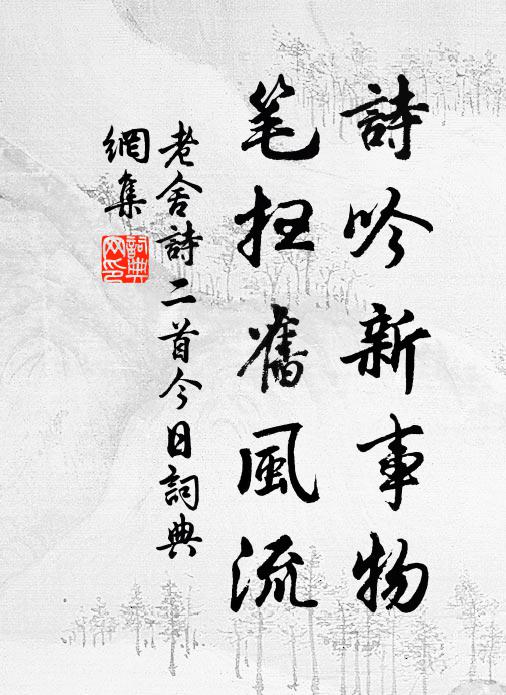 詩吟新事物
笔扫舊風流
老舍詩二首今日詞典
網集
詞典
网印